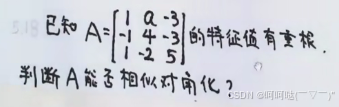 5.18 已知 A=[1 a -3; -1 4 -3; 1 -2 5] 的特征值有重根.
判断A能否相似对角化?
CSDN @呵呵哒(￣▽￣)"